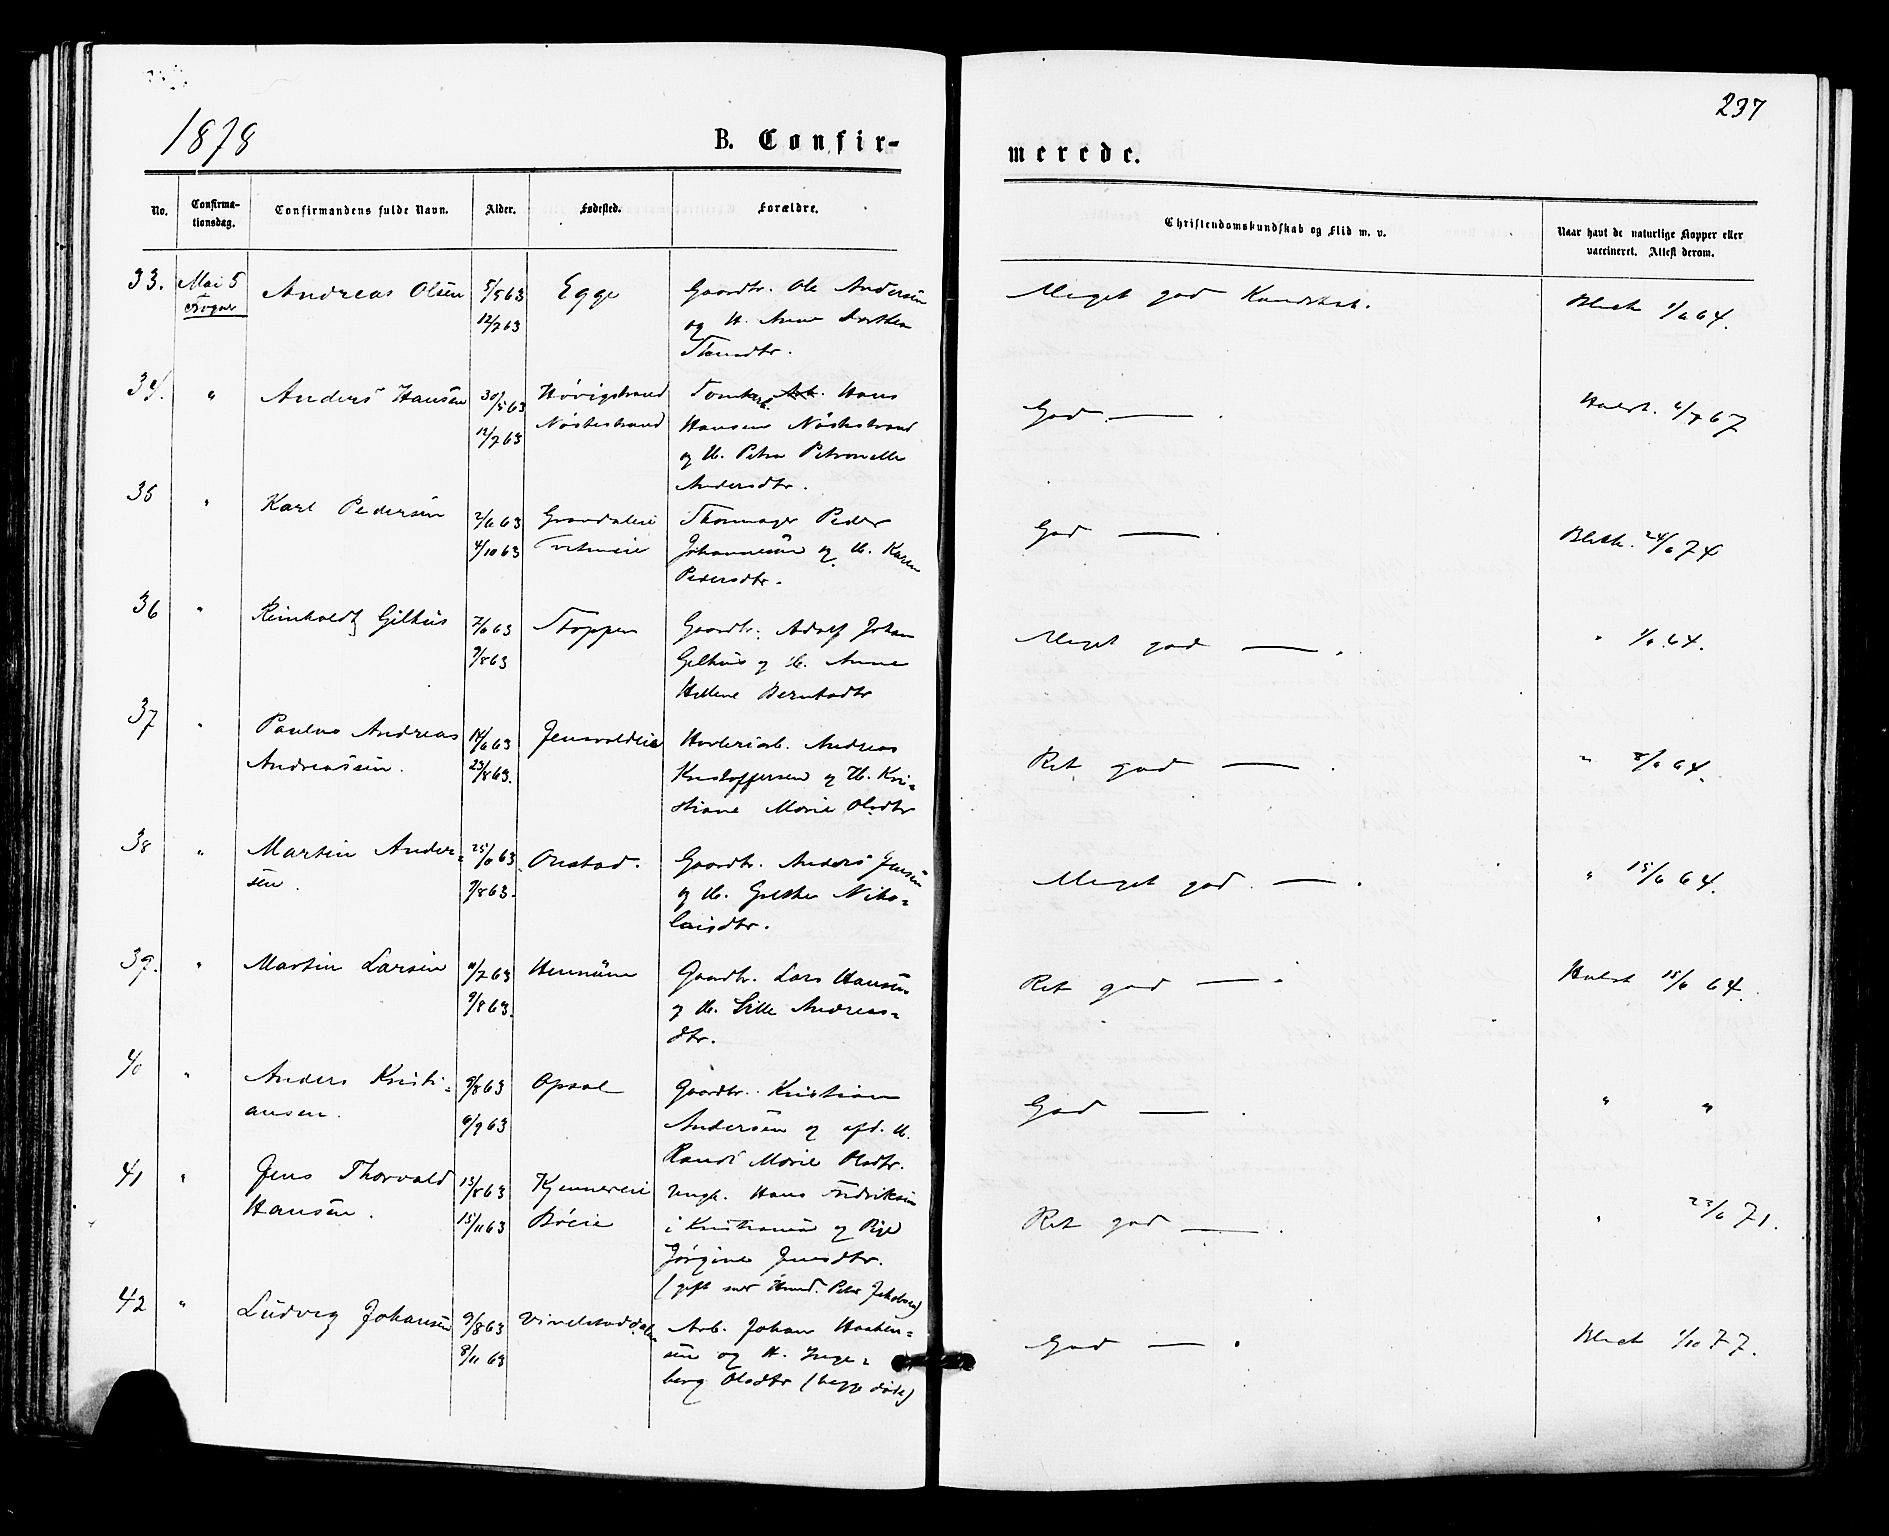 1878
B. Confir-
merede.
237
No.
Confirma-
tionsdag.
Confirmandens fulde Navn.
Alder.
Fødested.
Forældre.
Christendomskundskab og Flid m. v.
Naar havt de naturlige Kopper eller
vaccineret. Attest derom.
33. Mai 5 Andreas Olsen 5/5 63 Egge Gaardbr. Ole Andersen Meget god Kundskab.
12/7 63 og H. Anne Dorthea
34. " Anders Hansen 30/5 63 Høvigstrand Hans God — . 67
12/7 63 Nøstestrand Hansen Nøstestrand
og H. Petra Petronelle
Andersdtr.
35 " Karl Pedersen 2/6 63 Peder God — . 24/6 74
4/10 63 Johannesen og H. Karen
Pedersdtr.
36 " Reinholdt Gilhus 7/6 63 Stoppen Gaardbr. Adolf Johan Meget god — . " 64.
9/8 63 Gilhus og H. Anne
Hellene Berntsdtr
37 " Paulus Andreas 14/6 63 Andreas Ret god — . " 8/6 64.
Andreassen. 23/8 63. Kristoffersen og H. Kri-
stiane Marie Olsdtr
38 " Martin Ander- 25/6 63 Onstad. Gaardbr. Anders Jensen Meget god. — . " 15/6 64.
sen. 9/8 63. og H. Grethe Niko-
laisdtr.
39. " Martin Larsen 11/7 63 Gaardbr. Lars Hansen Ret god — . Holst 15/6 64.
9/8 63. og H. Sille Andreas-
dtr.
40 " Anders Kristi- 9/8 63 Opsal Gaardbr. Kristian God — . " "
ansen. 6/9 63 Andersen og afd. H.
Randi Marie Olsdtr.
41 " Jens Thorvald 13/8 63 Kjennereie Ungk. Hans Fredriksen Ret god — . " 23/6 71.
Hansen. 15/11 63 Böeie i Kristiania og Pige
Jørgine Jensdtr.
(gift med Peter Jakobsen)
42 " Ludvig Johansen 9/8 63 Arb. Johan Haaken- God — . 1/10 77.
8/11 63 sen og H. Inge-
borg Olsdtr (begge døde)